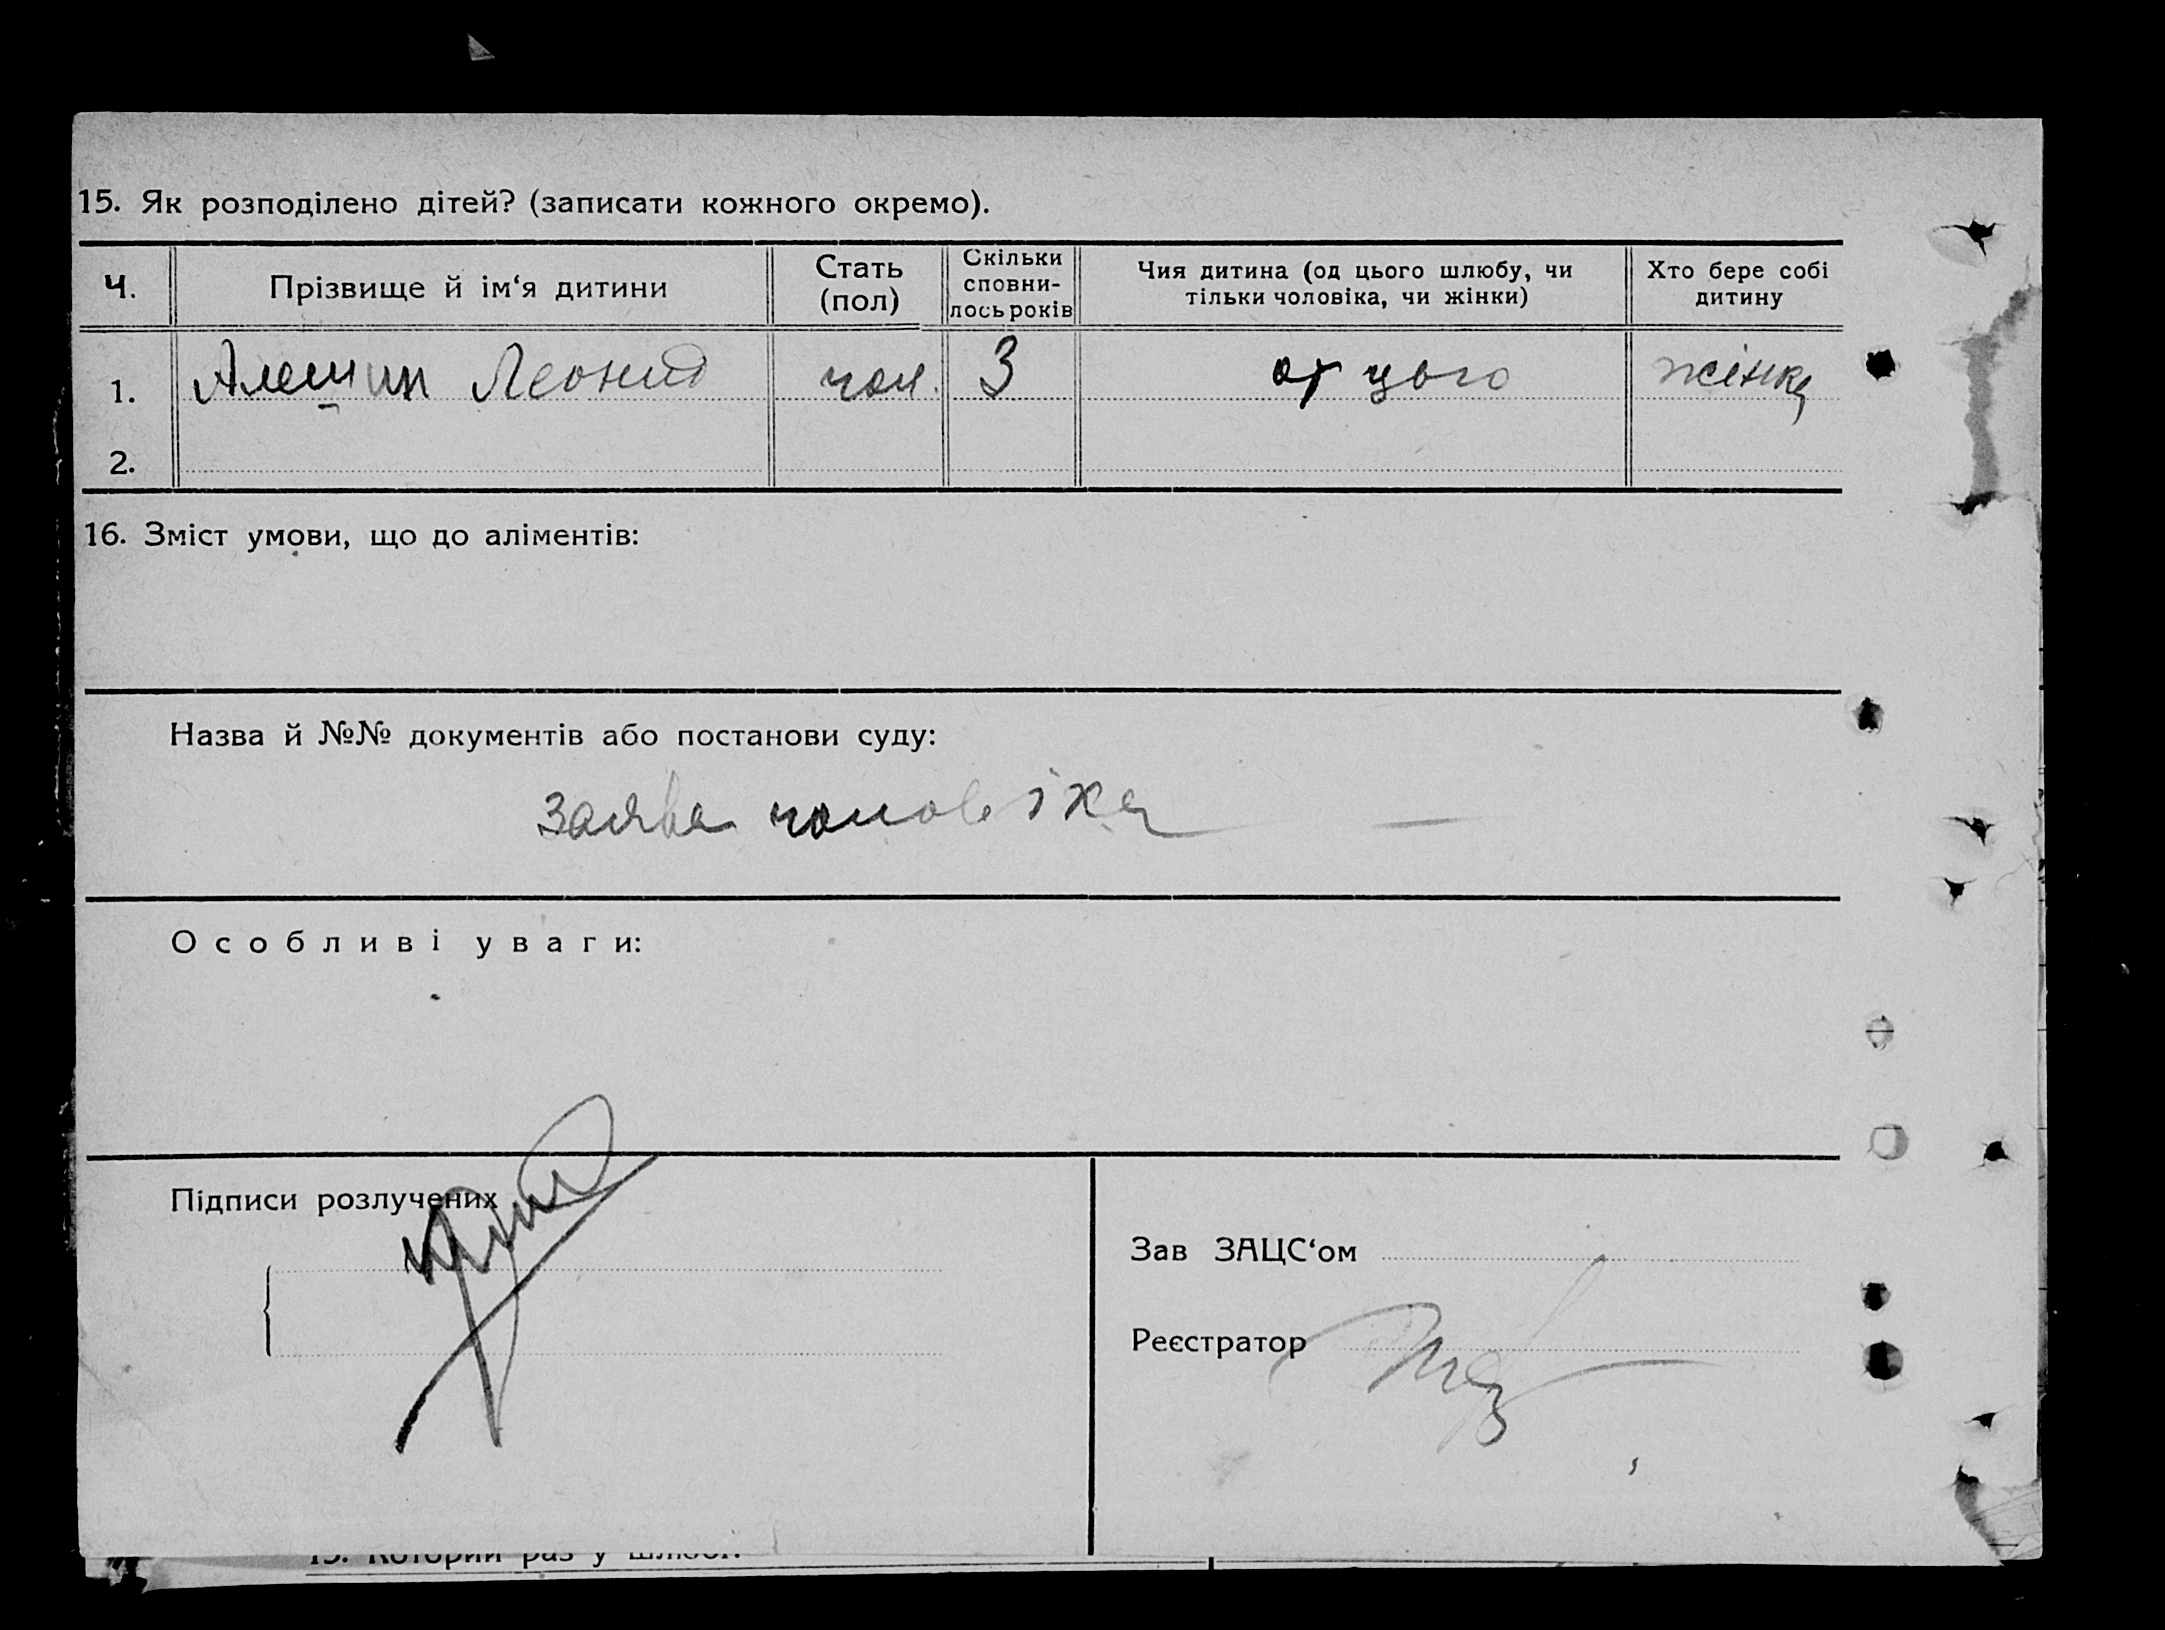 15. Як розподілено дітей? (записати кожного окремо).
Ч. Прізвище й ім‘я дитини Стать (пол) Скільки сповни-лось років Чия дитина (од цього шлюбу, чи тільки чоловіка, чи жінки) Хто бере собі дитину
1. Алешин Леонид чол. 3 от цього жінка
2.
16. Зміст умови, що до аліментів:
Назва й №№ документів або постанови суду:
заява чоловіка —
Особливі уваги:
Підписи розлучених
Зав ЗАЦС‘ом
Реєстратор
13. Которий раз у шлюбі: